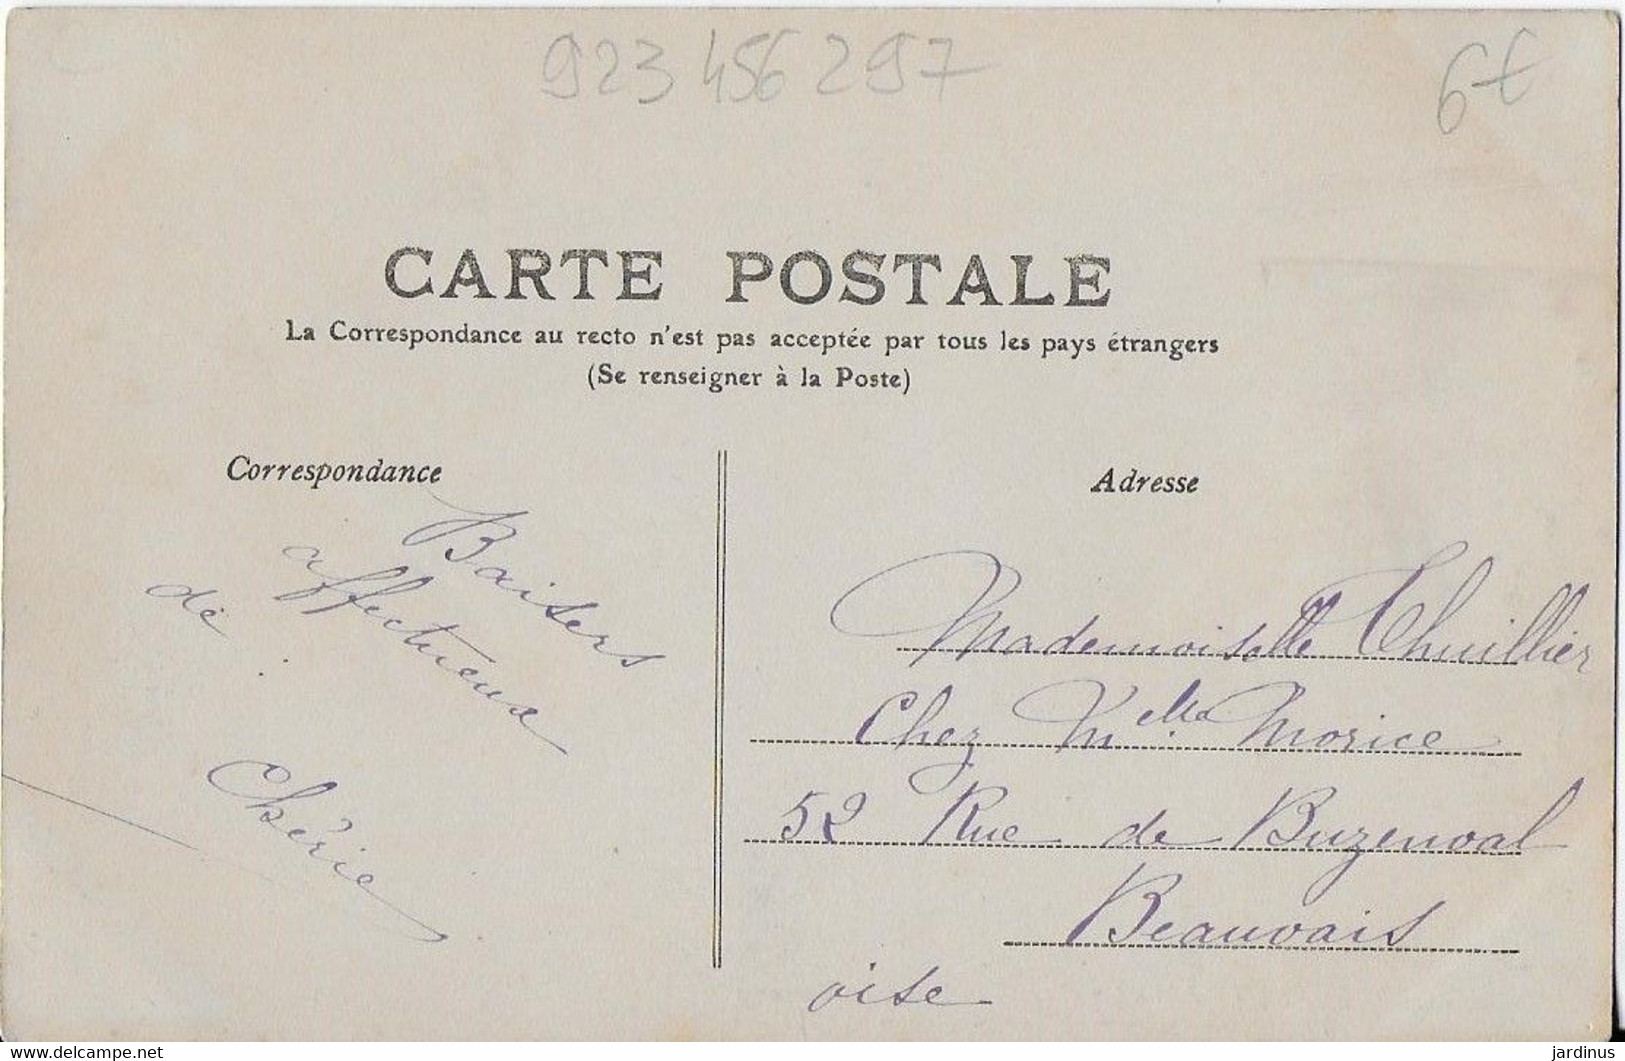 923 456 297
6€
CARTE POSTALE
La Correspondance au recto n'est pas acceptée par tous les pays étrangers
(Se renseigner à la Poste)
Correspondance
Baisers
affectueux
de
Chérie
Adresse
Mademoiselle Thuillier
Chez Melle Morice
52 Rue de Buzenval
Beauvais
oise
delcampe.net
jardinus